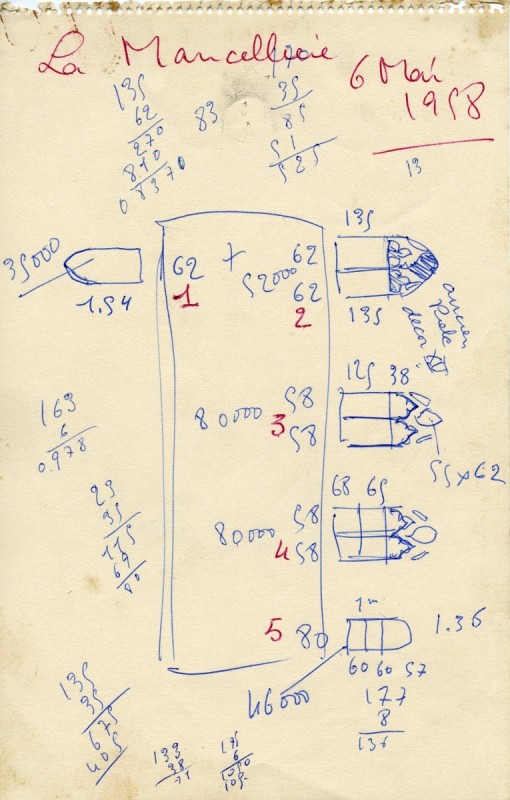 La Mancellière
6 Mai
1958
135
62
270
810
0.8370
83
170
35
85
51
525
13
35000
1.54
62
1
+
52000
62
62
2
135
135
ancien
decor
163
6
0.978
80000
58
3
58
125 38
55x62
29
35
115
69
80
80000
58
4
58
68 65
5
80
1m
1.36
60 60 57
46000
177
8
136
135
35
675
405
133
58
175
6
1050